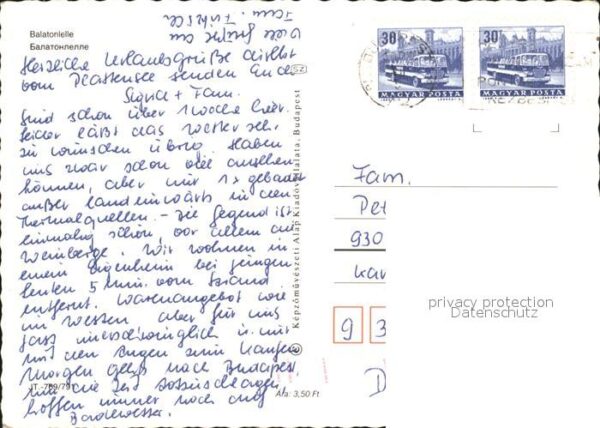 Balatonlelle
Балатонлелле
Fam.
Viele Grüße an
Herzliche Urlaubsgrüße direkt
vom Plattensee senden Euch
Sigrid + Fam.
Sind schon über 1 Woche hier.
Leider läßt das Wetter sehr
zu wünschen übrig. Haben
uns zwar schon viel ansehen
können, aber nur 1x gebadet
außer landeinwärts in den
Thermalquellen. - Die Gegend ist
einmalig schön, vor allem die
Weinberge. Wir wohnen in
einem Eigenheim bei jungen
Leuten 5 Min. vom Strand
entfernt. Warenangebot wie
im Westen aber für uns
fast unerschwinglich u. nur
mit den Augen zum Kaufen
Morgen geht's nach Budapest,
um die Zeit totzuschlagen
hoffen immer noch auf
Badewetter.
JT.-789/79
Ára: 3,50 Ft
Képzőművészeti Alap Kiadóvállalata, Budapest
SZ
30
MAGYAR POSTA
30
MAGYAR POSTA
Fam.
Pet
930
Kar
9 3
D
privacy protection
Datenschutz